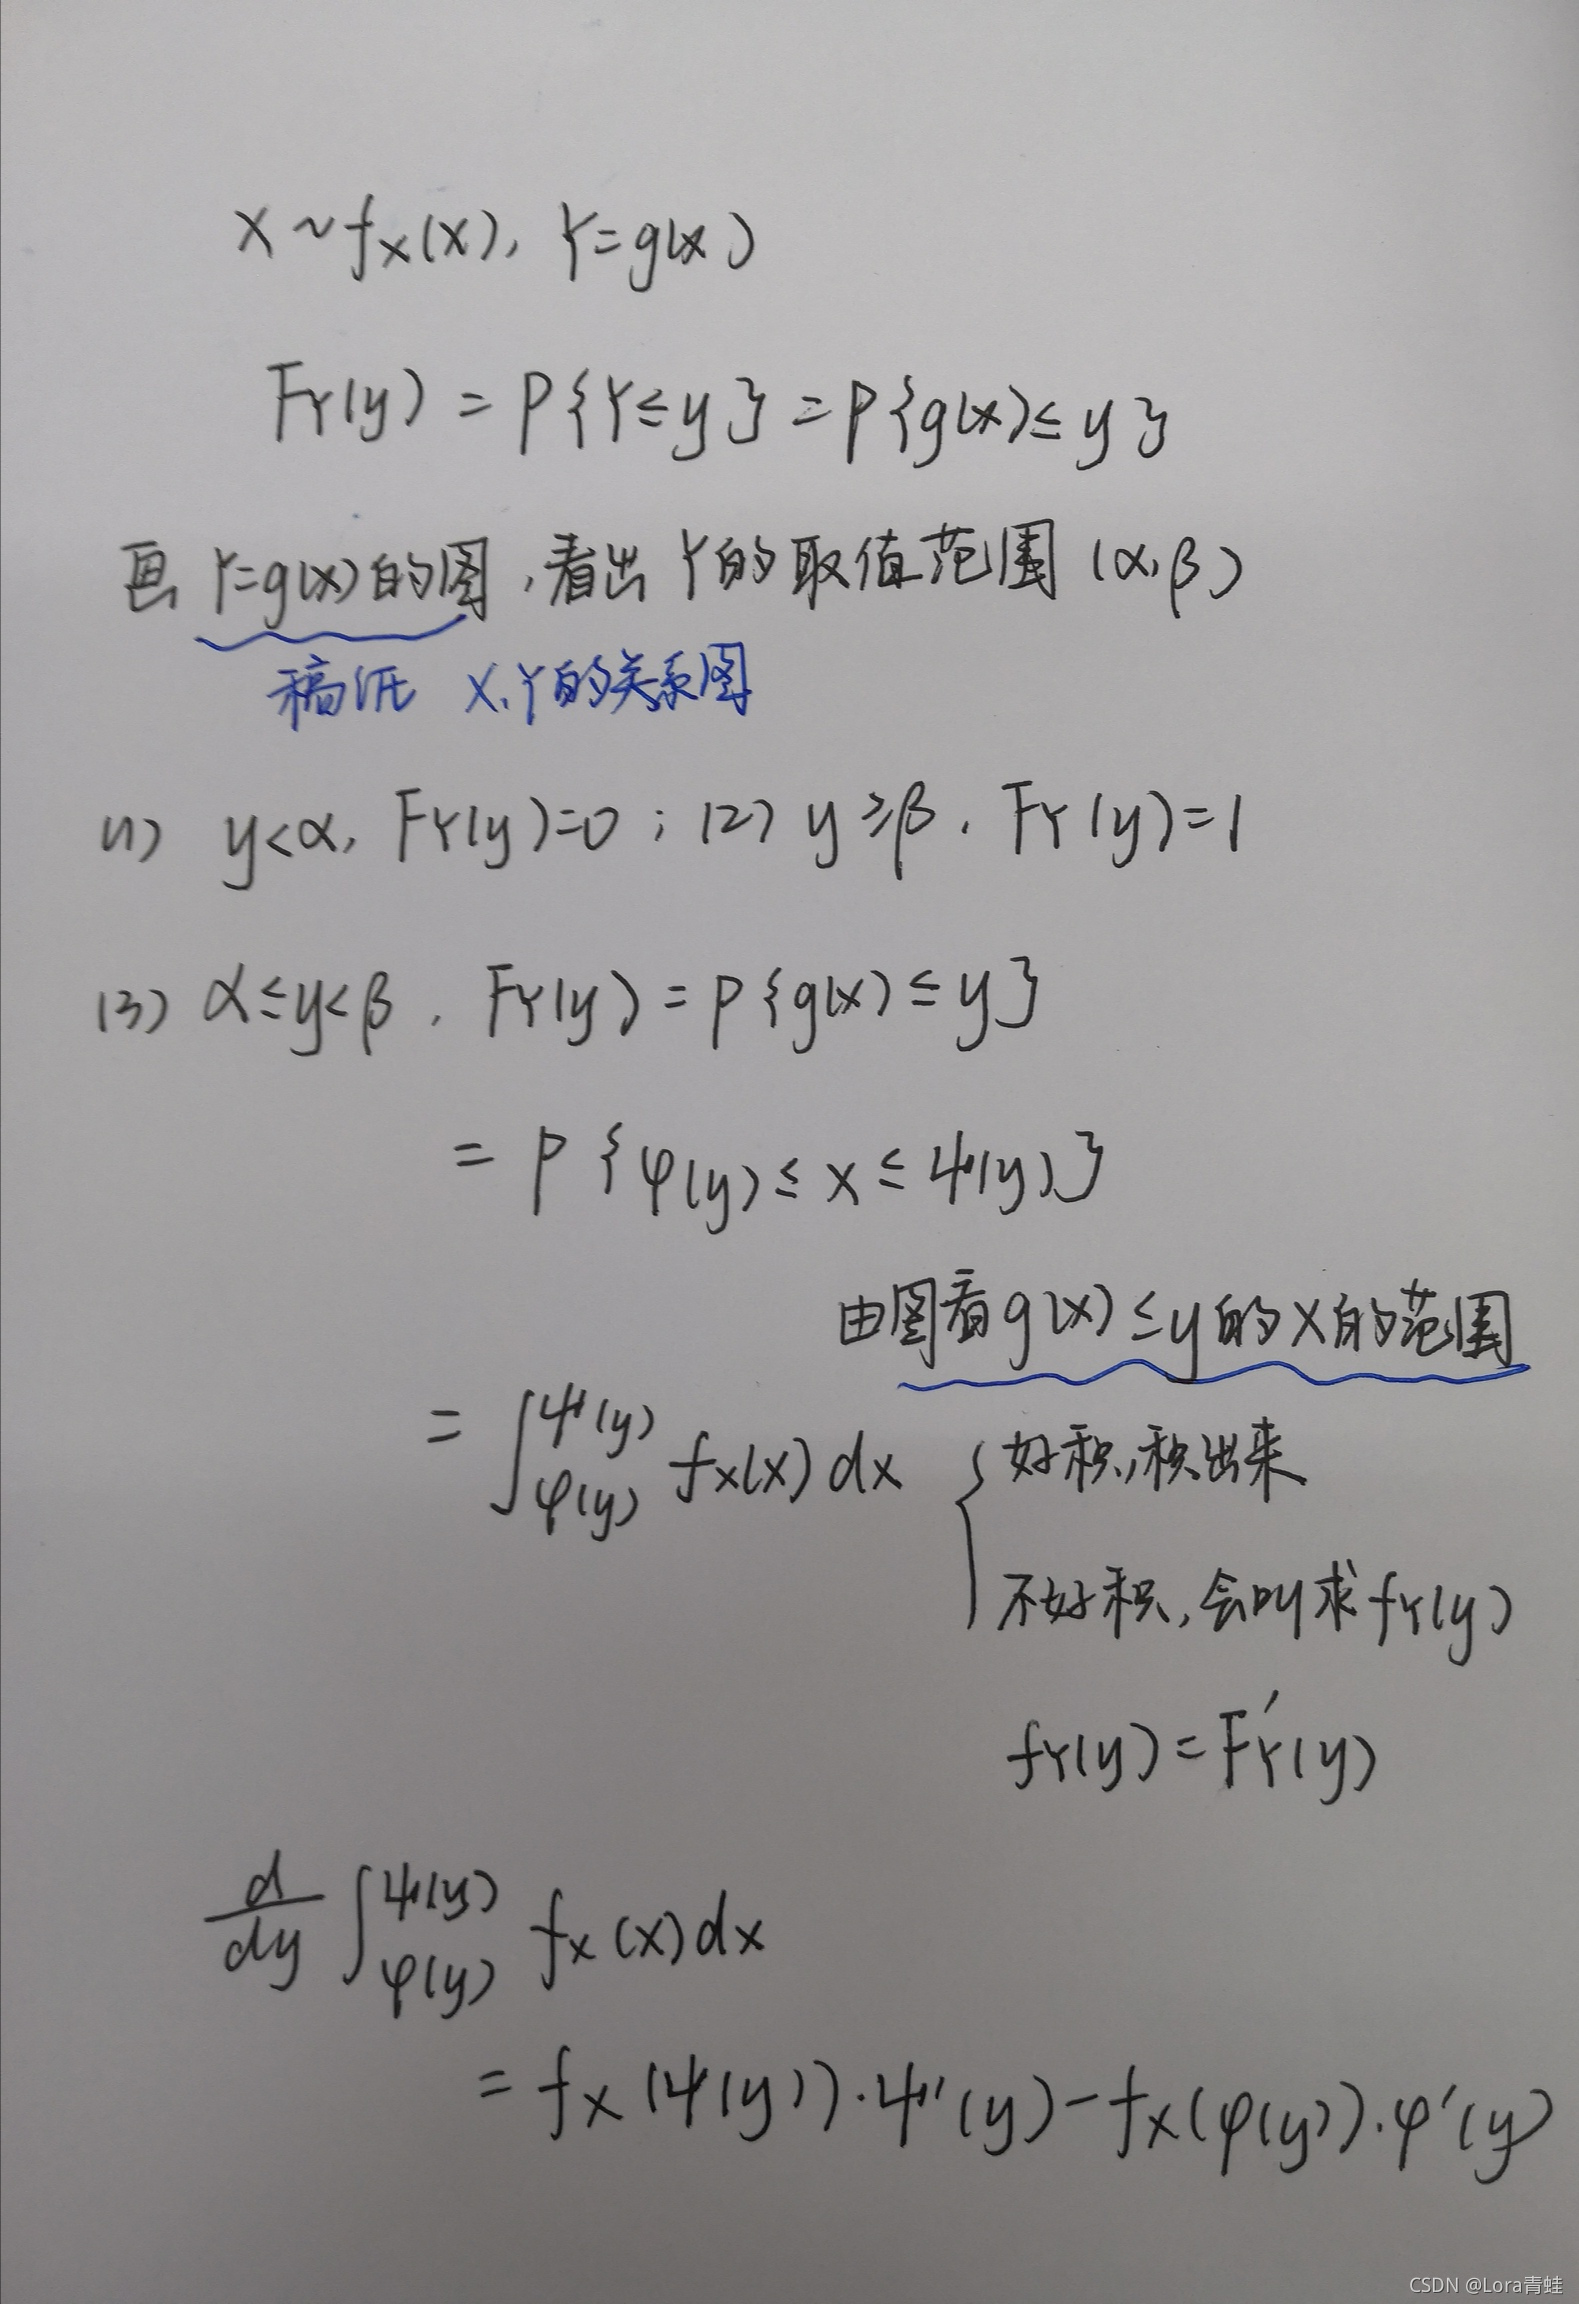 X ~ f_X(x), Y=g(x)
F_Y(y) = P{Y≤y} = P{g(x)≤y}
画 Y=g(x) 的图,看出 Y的取值范围 (α,β)
搞清 X、Y的关系图
(1) y<α, F_Y(y)=0 ; (2) y≥β, F_Y(y)=1
(3) α≤y<β, F_Y(y) = P{g(x)≤y}
= P{φ(y)≤x≤ψ(y)}
由图看g(x)≤y的X的范围
= ∫_{φ(y)}^{ψ(y)} f_X(x)dx { 好积,积出来
不好积,会叫求f_Y(y)
f_Y(y)=F_Y'(y)
d/dy ∫_{φ(y)}^{ψ(y)} f_X(x)dx
= f_X(ψ(y))·ψ'(y) - f_X(φ(y))·φ'(y)
CSDN @Lora青蛙